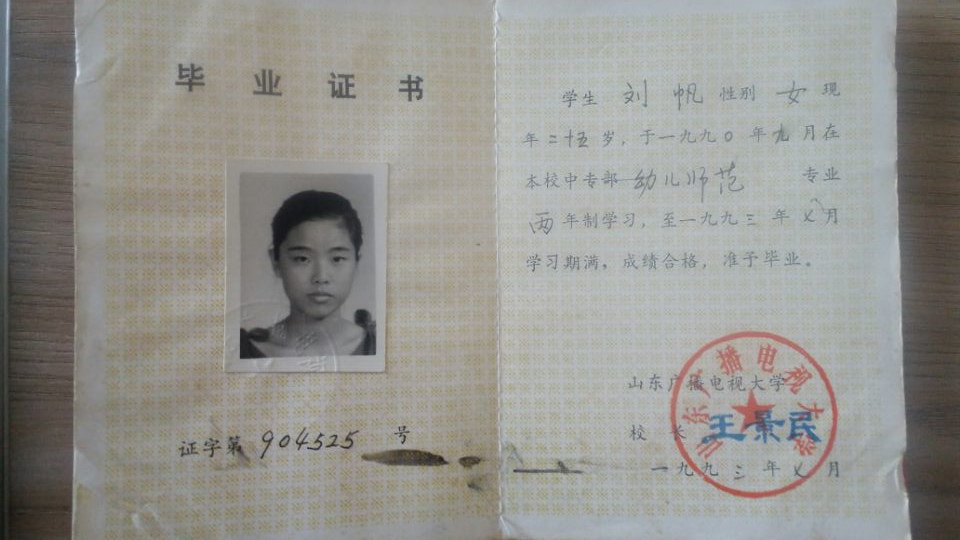 毕业证书
证字第904525号
学生 刘帆 性别 女 现
年二十五岁，于一九九〇年九月在
本校中专部 幼儿师范 专业
两年制学习，至一九九三年乂月
学习期满，成绩合格，准予毕业。
山东广播电视大学
校长 王景民
一九九三年乂月
山东广播电视大学